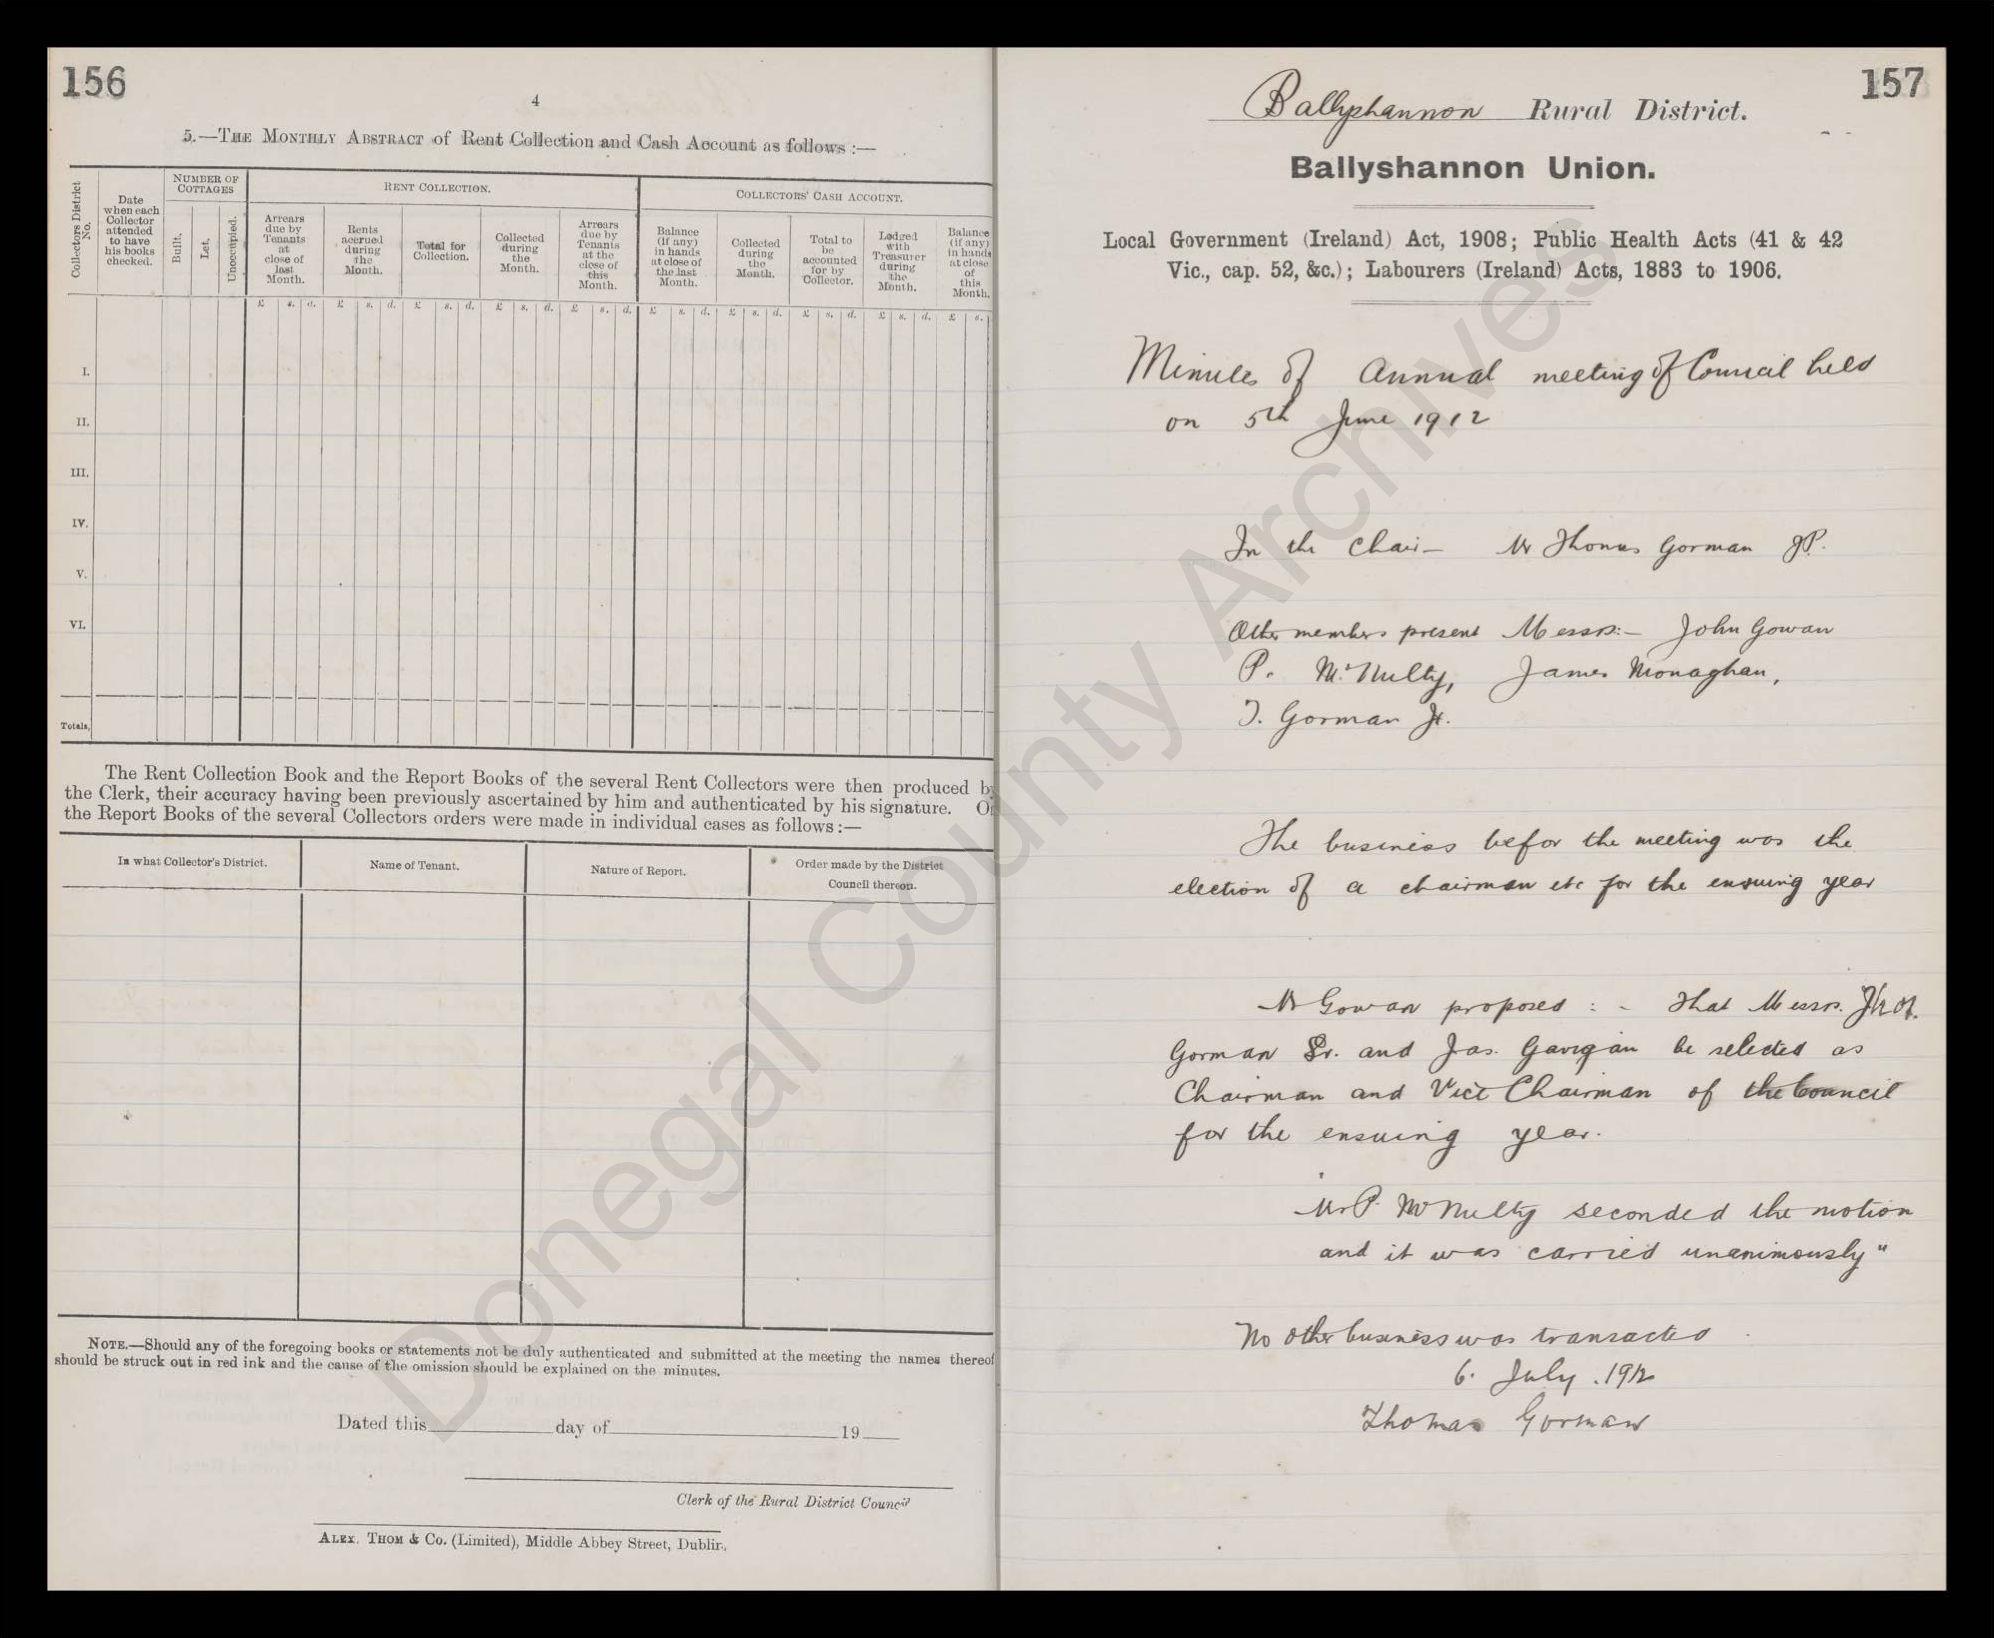 156
4
5.—THE MONTHLY ABSTRACT of Rent Collection and Cash Account as follows :—
Collectors District No.
Date when each Collector attended to have his books checked.
NUMBER OF COTTAGES
Built.
Let.
Unoccupied.
RENT COLLECTION.
Arrears due by Tenants at close of last Month.
Rents accrued during the Month.
Total for Collection.
Collected during the Month.
Arrears due by Tenants at the close of this Month.
COLLECTORS' CASH ACCOUNT.
Balance (if any) in hands at close of the last Month.
Collected during the Month.
Total to be accounted for by Collector.
Lodged with Treasurer during the Month.
Balance (if any) in hands at close of this Month.
£ s. d. £ s. d. £ s. d. £ s. d. £ s. d. £ s. d. £ s. d. £ s. d. £ s. d. £ s.
I.
II.
III.
IV.
V.
VI.
Totals,
The Rent Collection Book and the Report Books of the several Rent Collectors were then produced b
the Clerk, their accuracy having been previously ascertained by him and authenticated by his signature. O
the Report Books of the several Collectors orders were made in individual cases as follows :—
In what Collector's District.
Name of Tenant.
Nature of Report.
Order made by the District
Council thereon.
NOTE.—Should any of the foregoing books or statements not be duly authenticated and submitted at the meeting the names thereof
should be struck out in red ink and the cause of the omission should be explained on the minutes.
Dated this day of 19
Clerk of the Rural District Council
ALEX. THOM & Co. (Limited), Middle Abbey Street, Dublin.
157
Ballyshannon Rural District.
Ballyshannon Union.
Local Government (Ireland) Act, 1908; Public Health Acts (41 & 42
Vic., cap. 52, &c.); Labourers (Ireland) Acts, 1883 to 1906.
Minutes of Annual meeting of Council held
on 5th June 1912
In the Chair — Mr Thomas Gorman JP.
Other members present Messrs:— John Gowan
P. McNulty, James Monaghan,
T. Gorman Jr.
The business befor the meeting was the
election of a chairman etc for the ensuing year
Mr Gowan proposed :- That Messrs. Thos.
Gorman Sr. and Jas. Gavigan be selected as
Chairman and Vice Chairman of the Council
for the ensuing year.
Mr P. McNulty seconded the motion
and it was carried unanimously"
No other business was transacted
6. July .1912
Thomas Gorman
Donegal County Archives